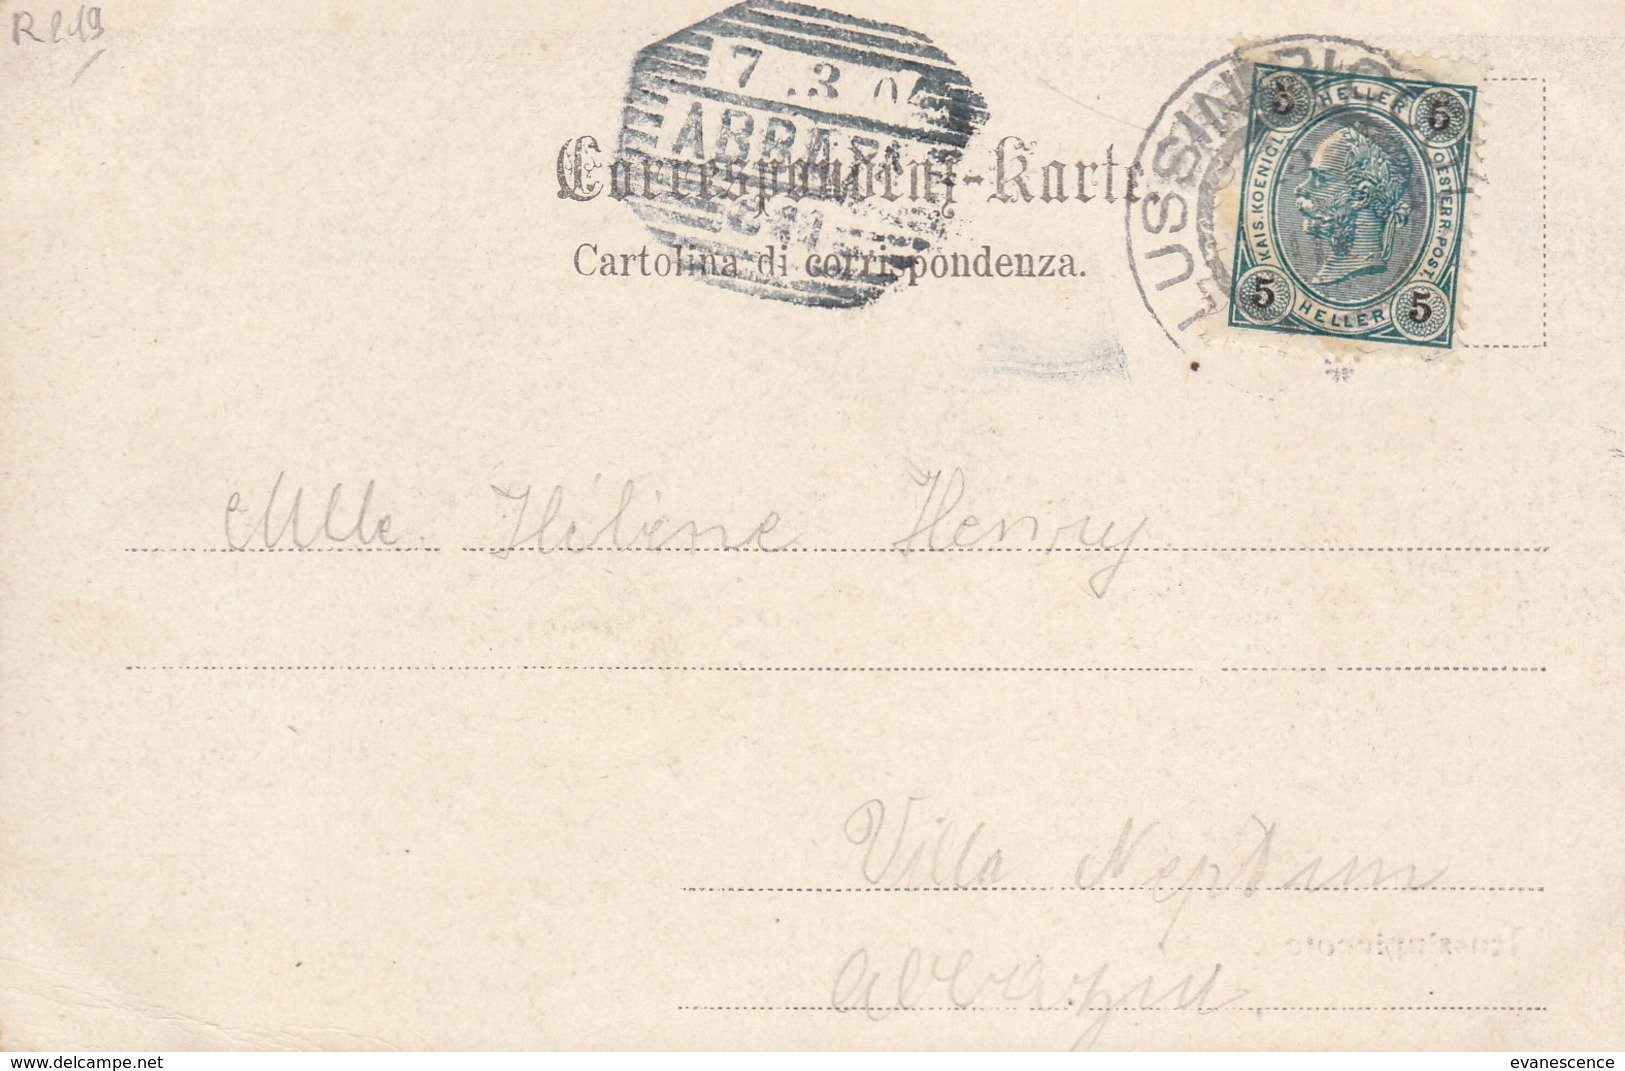 R 219
7 .3 04
ABBAZIA
Correspondenz-Karte
Cartolina di corrispondenza.
LUSSINPICCOLO
5 HELLER 5
KAIS. KOENIGL. OESTERR. POST.
5 HELLER 5
Mlle. Hélène Henry
Villa Neptun
Abbazia
Lussinpiccolo
delcampe.net
evanescence